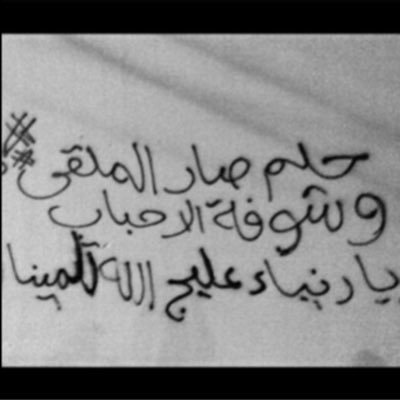 حلم صار الملقى
وشوفة الاحباب
يا دنياء عليج الله تلمينا